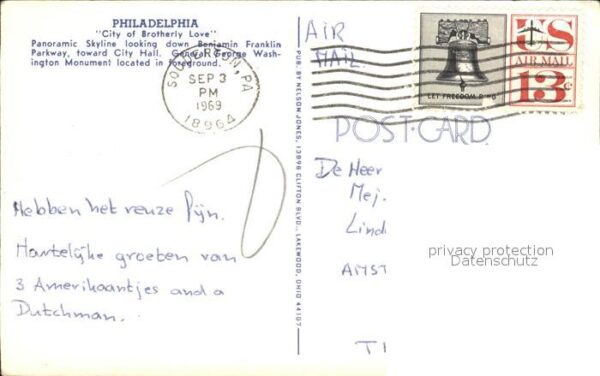 PHILADELPHIA
"City of Brotherly Love"
Panoramic Skyline looking down Benjamin Franklin
Parkway, toward City Hall. General George Wash-
ington Monument located in foreground.
SOUDERTON, PA
SEP 3
PM
1969
18964
AIR
MAIL
LET FREEDOM RING
US
AIR MAIL
13c
POST CARD
PUB. BY NELSON JONES, 13898 CLIFTON BLVD., LAKEWOOD, OHIO 44107
Hebben het reuze fijn.
Hartelijke groeten van
3 Amerikaantjes and a
Dutchman.
De Heer
Mej.
Lind
AMST
privacy protection
Datenschutz